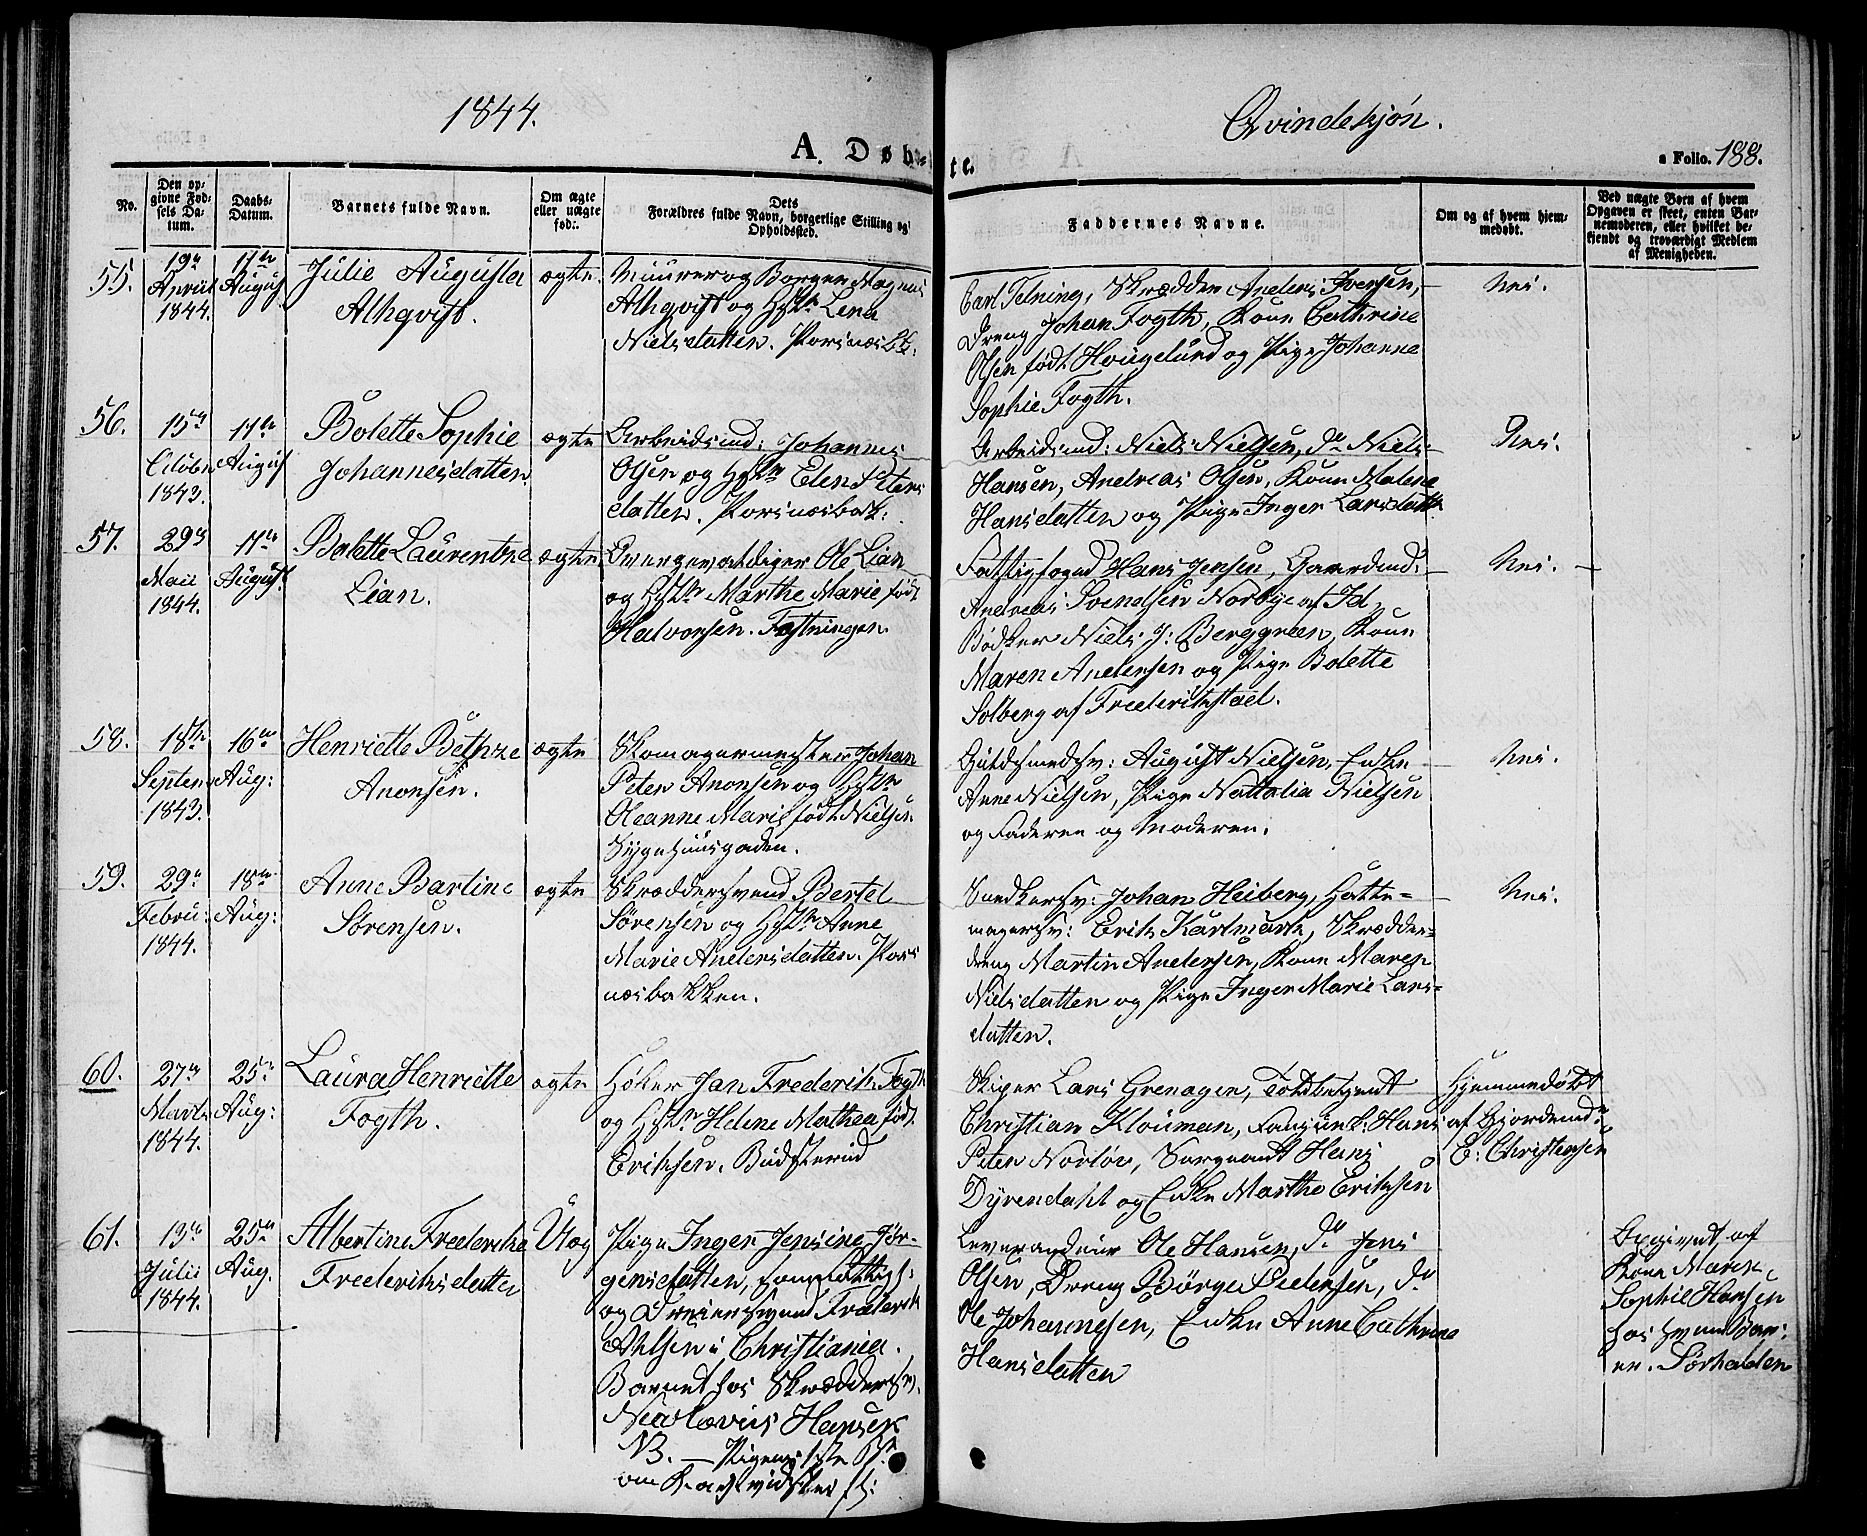 1844.
Qvindekjön.
A. Døb-
te.
a Folio. 188.
No.
Den op-
givne Fød-
sels Da-
tum.
Daabs-
Datum.
Barnets fulde Navn.
Om ægte
eller uægte
fød:.
Dets
Forældres fulde Navn, borgerlige Stilling og
Opholdssted.
Faddernes Navne.
Om og af hvem hjem-
medøbt.
Ved uægte Børn af hvem
Opgaven er skeet, enten Bar-
nemoderen, eller hvilket be-
kjendt og troværdigt Medlem
af Menigheden.
55.
19de
April
1844.
11te
August
Julie Augusta
Alhqvist.
ægte.
Muurer og Borger Magnus
Alhqvist og Hstr Lena
Nielsdatter. Porsnæsbk:
Carl Telning, Skrædder Anders Iversen,
Dreng Johan Fogth, Kone Cathrine
Olsen født Hougelund og Pige Johanne
Sophie Fogth.
Nei.
56.
15de
Octobr
1843.
11te
August
Bolette Sophie
Johannesdatter.
ægte
Arbeidsmd: Johannes
Olsen og Hstr Elen Peters
datter. Porsnæsbak:
Arbeidsmd: Niels Nielsen, do Niels
Hansen, Andreas Olsen, Kone Malene
Hansdatter og Pige Inger Larsdattr
Nei.
57.
29de
Maii
1844.
11te
August.
Bolette Laurentze
Lian.
ægte
Ole Lian
og Hstr Marthe Marie født
Halvorsen. Fæstningen.
Fattigfogud Hans Jensen, Gaardmd:
Andreas Svendsen Norbye af Id,
Bødker Niels J: Berggreen, Kone
Maren Andersen og Pige Bolette
Solberg af Frederikstad.
Nei.
58.
18de
Septem
1843.
16de
Aug:
Henriette Bethze
Anonsen.
ægte
Skomagermester Johan
Peter Anonsen og Hstr
Oleanne Marie født Nielsen.
Sygehuusgaden.
Guldsmedsv: August Nielsen, Enke
Anne Nielsen, Pige Nathalia Nielsen
og Faderen og Moderen.
Nei.
59.
29de
Febru:
1844.
18de
Aug:
Anne Bartine
Sørensen.
ægte
Skræddersvend Bertel
Sørensen og Hstr Anne
Marie Andersdatter. Pors
næsbakken.
Snedkersv: Johan Heiberg, Hatte-
magersv: Erik Karlmark, Skrædder-
dreng Martin Andersen, Kone Maren
Nielsdatter og Pige Inger Marie Lars-
datter.
Nei.
60.
27de
Marts
1844.
25de
Aug:
Laura Henriette
Fogth.
ægte
Høker Jan Frederik Fogth
og Hstr Helene Mathea født
Eriksen. Büdsterud
Skiper Lars Grenagen, Toldbetjent
Christian Klouman, Hans
Peter Norløv, Sergeant Hans
Dyrendahl og Enke Marthe Eriksen
Hjemmedøbt
af Gjordemdr
E: Christensen
61.
13de
Julii
1844.
25de
Aug.
Albertine Frederikke
Frederiksdatter
Uæg
Pige Inger Jensine Jør-
gensdatter,
og Dreiersvend Frederik
Ahlsen i Christiania.
Barnet hos Skræddersv.
Nicolovius Hansen
NB. — Pigens 1ste Bn
Leverandeur Ole Hansen, do Jens
Olsen, Dreng Børge Pedersen, do
Ole Johannesen, Enke Anne Cathrine
Hansdatter
Opgivet af
Kone Maren
Sophie Hansen
hos hvem Bar:
er. Sørhalden